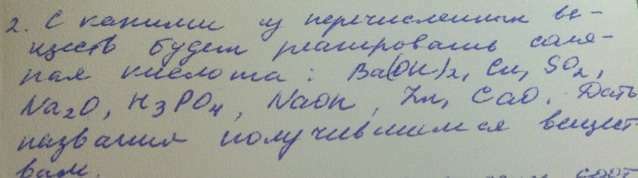 2. С какими из перечисленных ве-
ществ будет реагировать соля-
ная кислота: Ba(OH)2, Cu, SO2,
Na2O, H3PO4, NaOH, Zn, CaO. Дать
названия получившимся вещест
вам.
соот